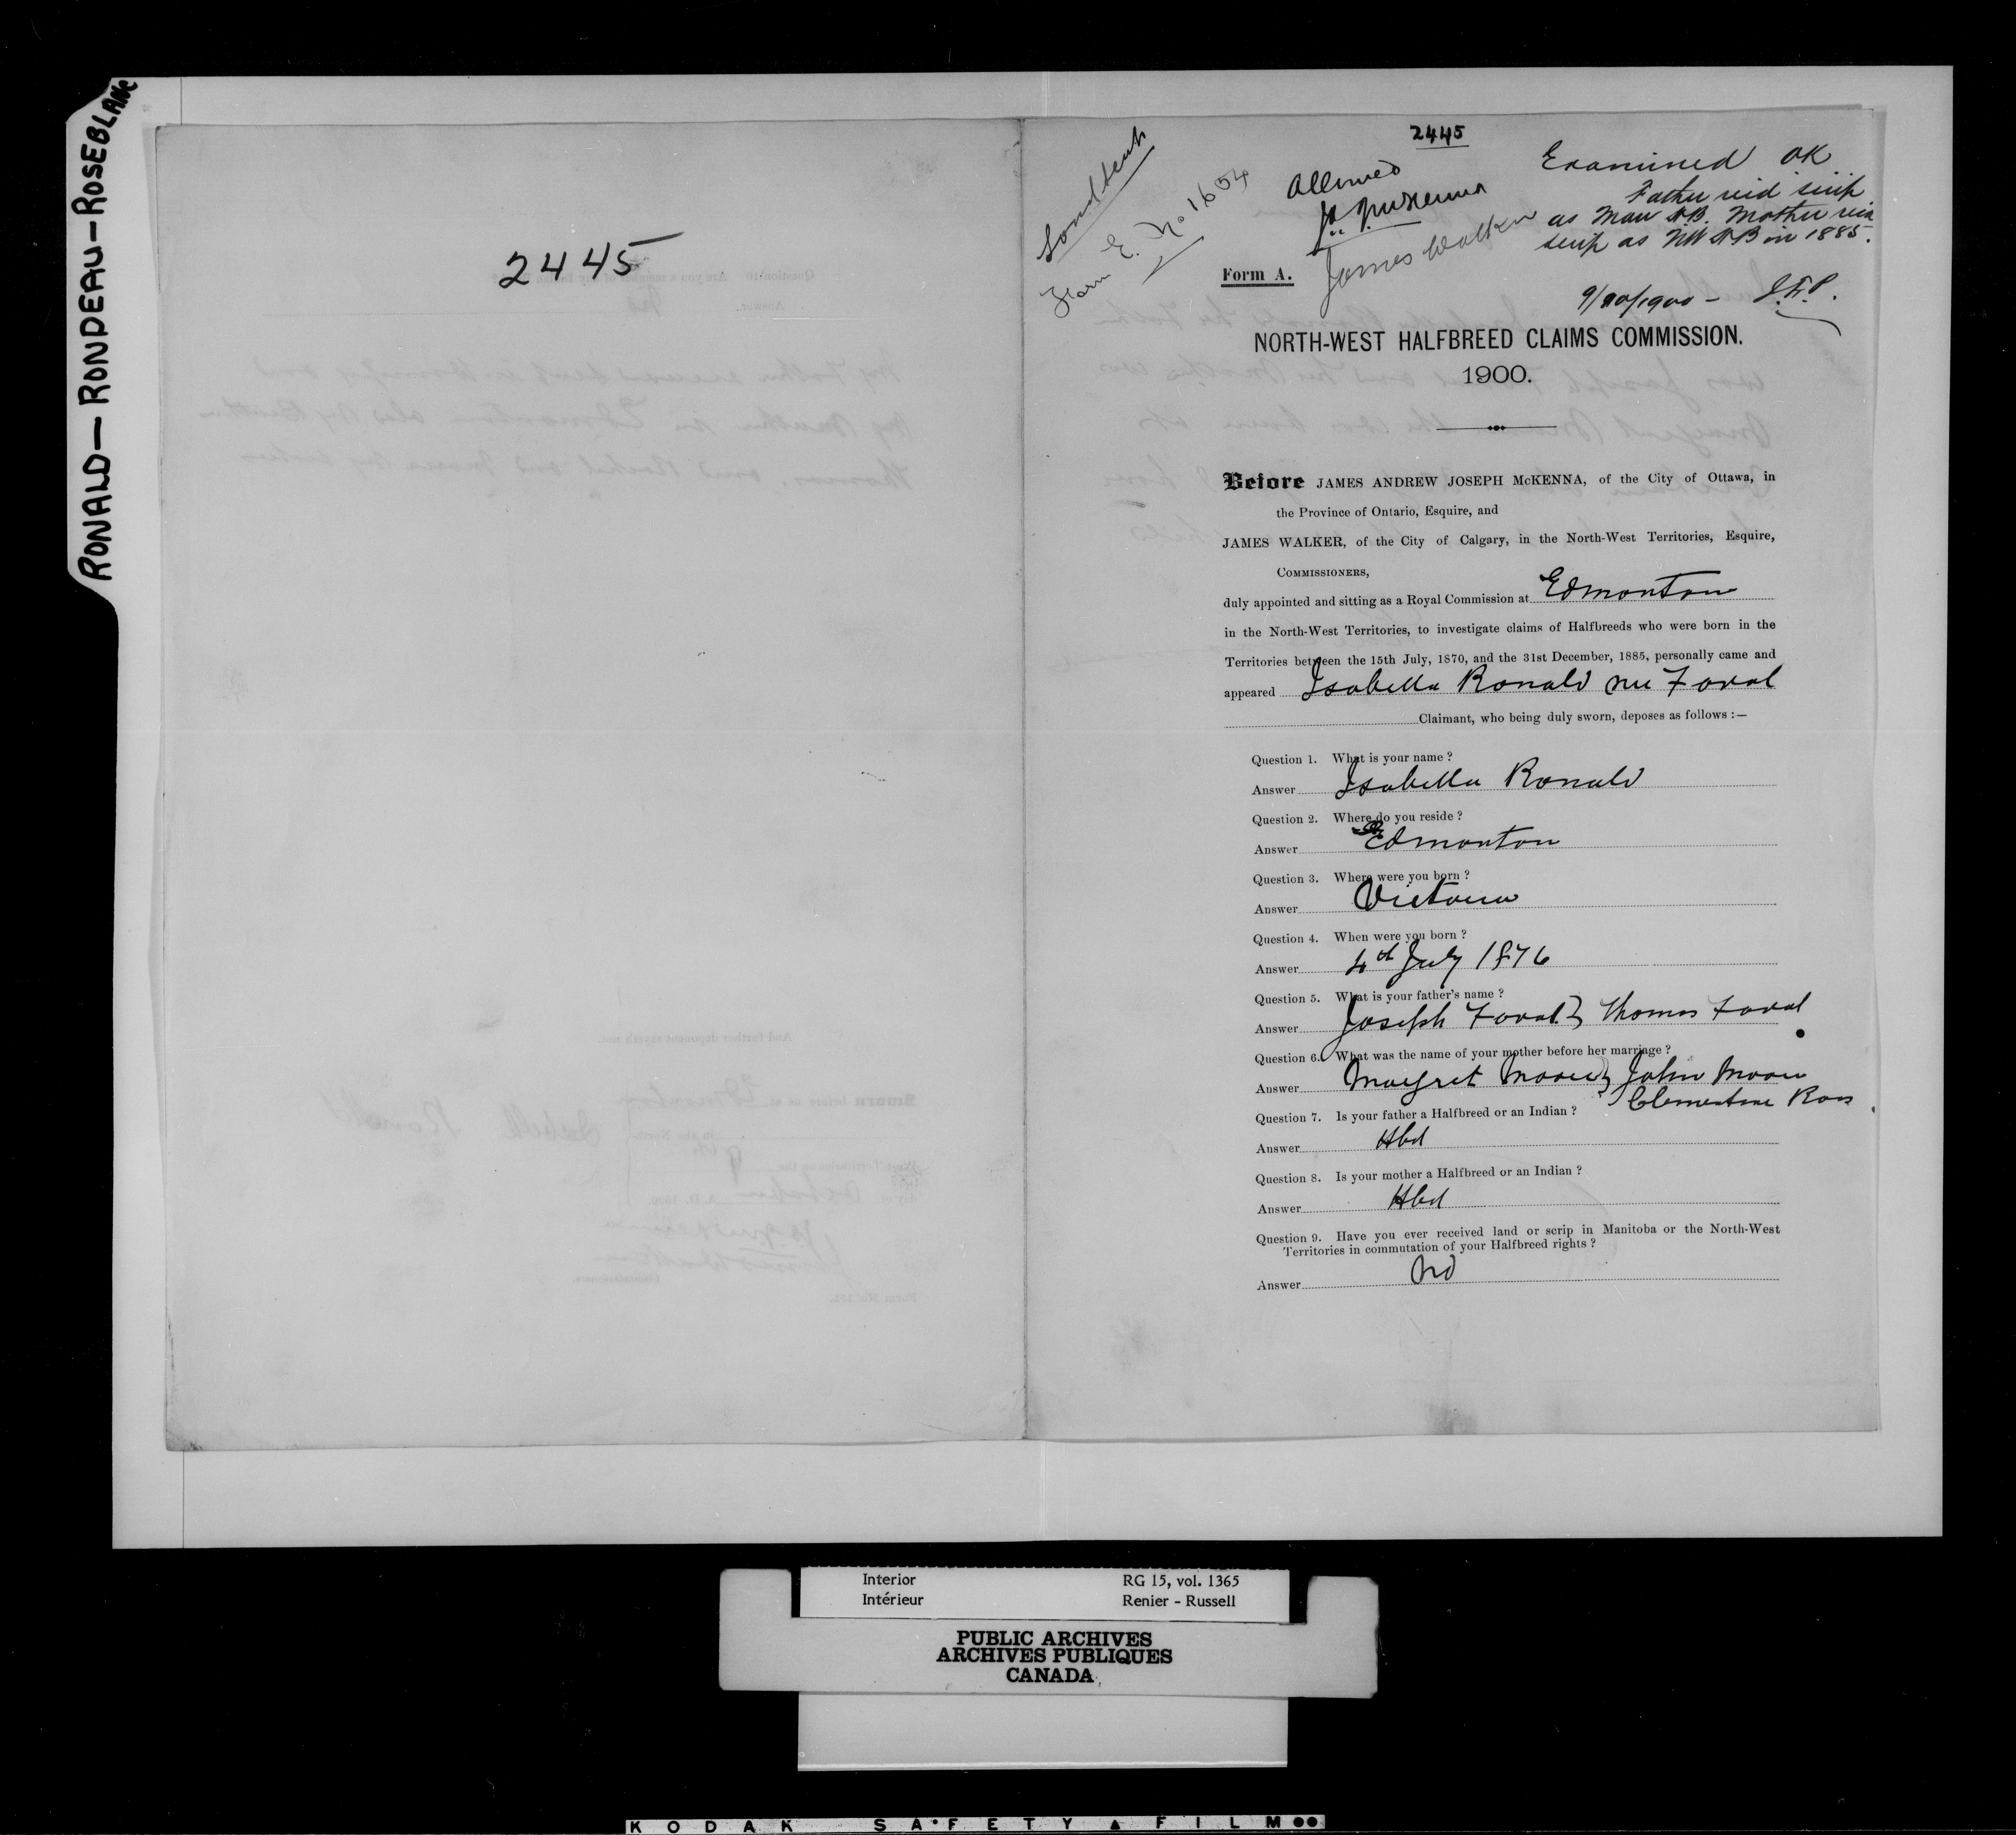 RONALD — RONDEAU — ROSEBLANC
2445
2445
Land scrip
Form E. No 1654
Allowed
J.A.J. McKenna
James Walker
Examined OK
Father recd scrip
as Man H.B. Mother recd
scrip as NW HB in 1885.
9/10/1900 — J.F.P.
Form A.
NORTH-WEST HALFBREED CLAIMS COMMISSION.
1900.
Before JAMES ANDREW JOSEPH McKENNA, of the City of Ottawa, in
the Province of Ontario, Esquire, and
JAMES WALKER, of the City of Calgary, in the North-West Territories, Esquire,
COMMISSIONERS,
duly appointed and sitting as a Royal Commission at Edmonton
in the North-West Territories, to investigate claims of Halfbreeds who were born in the
Territories between the 15th July, 1870, and the 31st December, 1885, personally came and
appeared Isabella Ronald nee Favel
Claimant, who being duly sworn, deposes as follows :—
Question 1. What is your name ?
Answer Isabella Ronald
Question 2. Where do you reside ?
Answer Edmonton
Question 3. Where were you born ?
Answer Victoria
Question 4. When were you born ?
Answer 4th July 1876
Question 5. What is your father's name ?
Answer Joseph Favel } Thomas Favel
Question 6. What was the name of your mother before her marriage ?
Answer Margret Moore } John Moore
Clementine Ross
Question 7. Is your father a Halfbreed or an Indian ?
Answer Hbd
Question 8. Is your mother a Halfbreed or an Indian ?
Answer Hbd
Question 9. Have you ever received land or scrip in Manitoba or the North-West
Territories in commutation of your Halfbreed rights ?
Answer No
Interior RG 15, vol. 1365
Intérieur Renier - Russell
PUBLIC ARCHIVES
ARCHIVES PUBLIQUES
CANADA
KODAK SAFETY FILM